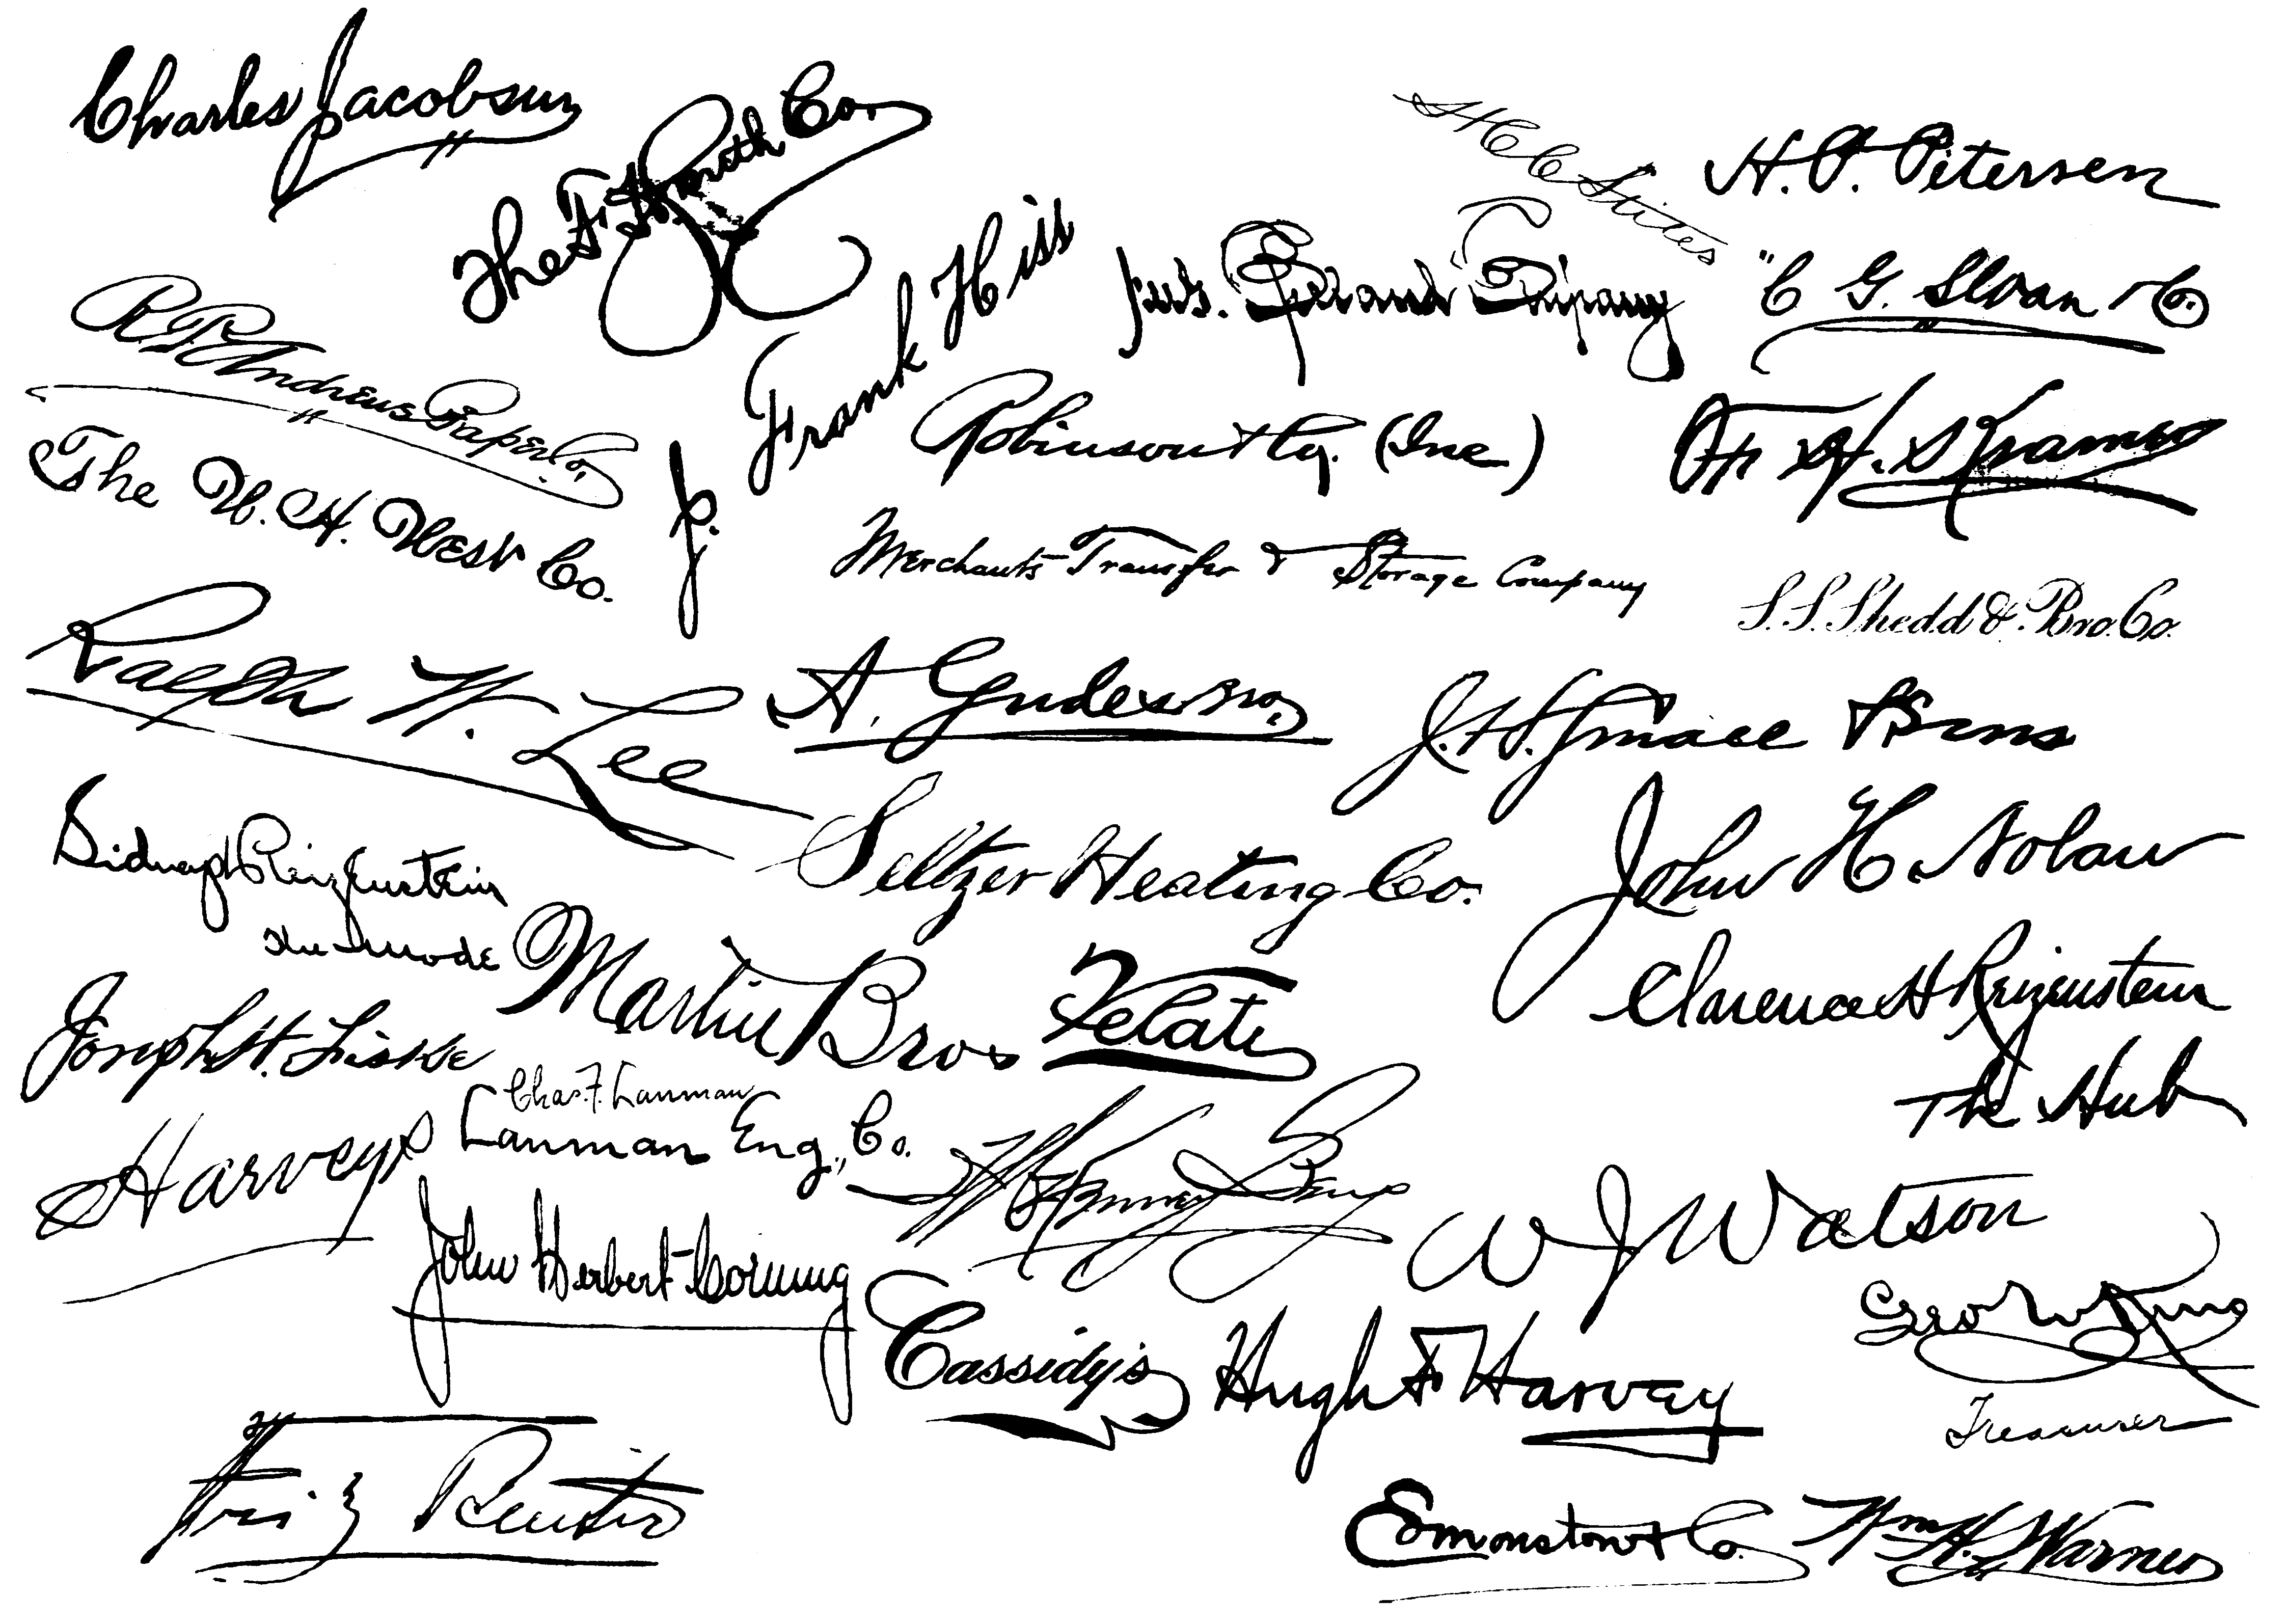 Charles Jacobsen
The F. H. Smith Co.
H C C Stites
H. P. Petersen
J. Frank Hiss
Jus. Company
"C G. Sloan & Co.
R. P. Andrews Paper Co.
Robinson & Co. (Inc)
H. S. Kramer
The W. H. West Co.
Merchants Transfer & Storage Company
S. S. Shedd & Bro. Co.
Ralph W. Lee
A. Gude & Bro.
J. H. Small & Sons
Sidney Reizenstein
Seltzer Heating Co.
John H Nolan
Mode
Martin Bros
Velati
Clarence H Reizenstein
Joseph H.
The Hub
Chas. F. Lanman
Lanman Eng., Co.
Harveys
W J Watson
John Herbert Corning
Geo W King
Cassidy's
Hugh F Harvey
Treasurer
Fritz Reuter
Edmonston & Co.
Wm H. Warner